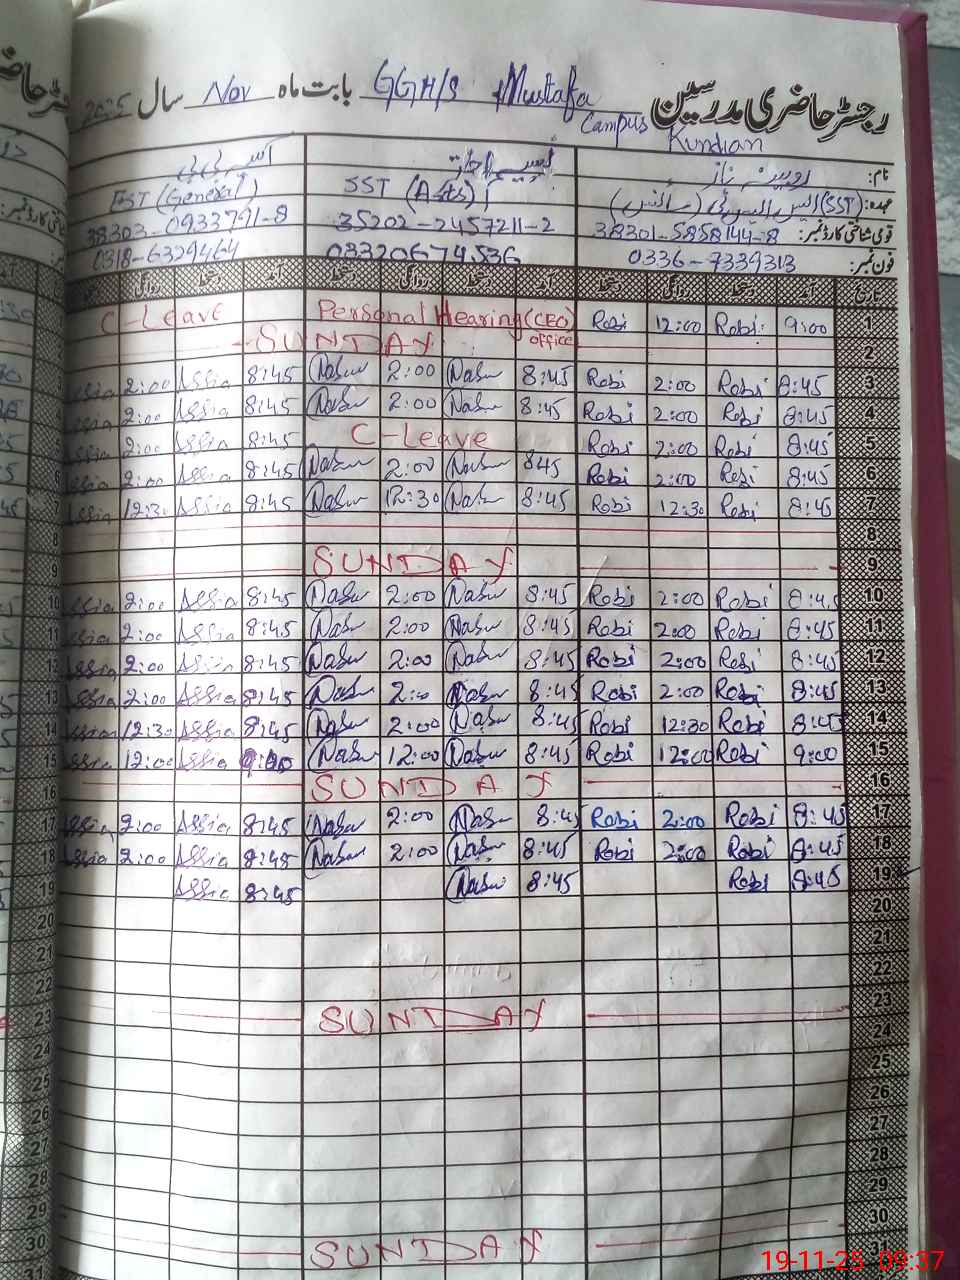 رجسٹر حاضری مدرسین GGH/S Mustafa بابت ماہ Nov سال 2025
Campus Kundian
نام: روبینہ ناز
عہدہ: (SST) ایس ایس ٹی (سائنس) SST (Arts) EST (General)
قومی شناختی کارڈ نمبر: 38301-5858144-8 35202-2457211-2 38303-0933791-8
فون نمبر: 0336-7339313 03320674536 0318-6329464
تاریخ آمد دستخط روانگی دستخط آمد دستخط روانگی دستخط آمد دستخط روانگی
1 9:00 Robi 12:00 Robi Personal Hearing (CEO) office C-Leave
2 SUNDAY
3 8:45 Robi 2:00 Robi 8:45 Nasu 2:00 Nasu 8:45 Assia 2:00
4 8:45 Robi 2:00 Robi 8:45 Nasu 2:00 Nasu 8:45 Assia 2:00
5 8:45 Robi 2:00 Robi C-Leave 8:45 Assia 2:00
6 8:45 Robi 2:00 Robi 8:45 Nasu 2:00 Nasu 8:45 Assia 2:00
7 8:45 Robi 12:30 Robi 8:45 Nasu 12:30 Nasu 8:45 Assia 12:30
8
9 SUNDAY
10 8:45 Robi 2:00 Robi 8:45 Nasu 2:00 Nasu 8:45 Assia 2:00
11 8:45 Robi 2:00 Robi 8:45 Nasu 2:00 Nasu 8:45 Assia 2:00
12 8:45 Robi 2:00 Robi 8:45 Nasu 2:00 Nasu 8:45 Assia 2:00
13 8:45 Robi 2:00 Robi 8:45 Nasu 2:00 Nasu 8:45 Assia 2:00
14 8:45 Robi 12:30 Robi 8:45 Nasu 2:00 Nasu 8:45 Assia 12:30
15 9:00 Robi 12:00 Robi 8:45 Nasu 12:00 Nasu 9:00 Assia 12:00
16 SUNDAY
17 8:45 Robi 2:00 Robi 8:45 Nasu 2:00 Nasu 8:45 Assia 2:00
18 8:45 Robi 2:00 Robi 8:45 Nasu 2:00 Nasu 8:45 Assia 2:00
19 8:45 Robi 8:45 Nasu 8:45 Assia
20
21
22
23 SUNDAY
24
25
26
27
28
29
30 SUNDAY
31
19-11-25 09:37